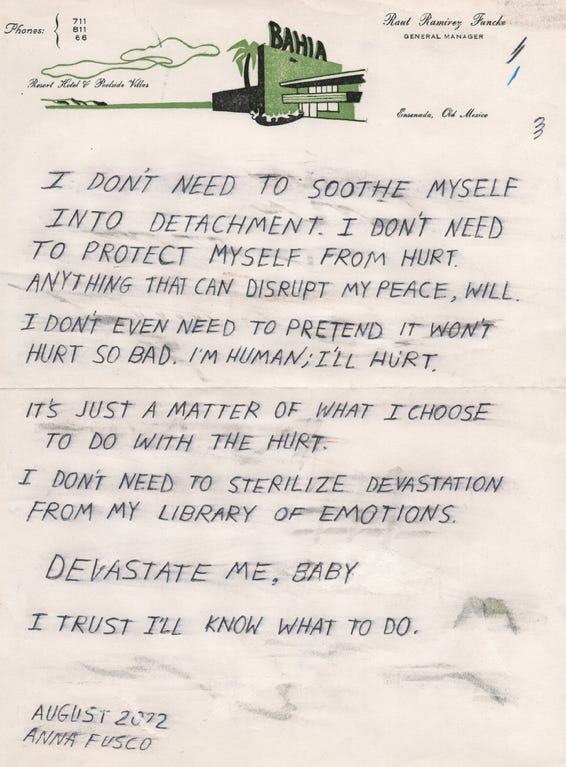 Phones: { 711
811
66
BAHIA
Raul Ramirez Funcke
GENERAL MANAGER
Resort Hotel & Poolside Villas
Ensenada, Old Mexico
I DON'T NEED TO SOOTHE MYSELF
INTO DETACHMENT. I DON'T NEED
TO PROTECT MYSELF FROM HURT.
ANYTHING THAT CAN DISRUPT MY PEACE, WILL.
I DON'T EVEN NEED TO PRETEND IT WON'T
HURT SO BAD. I'M HUMAN; I'LL HURT.
IT'S JUST A MATTER OF WHAT I CHOOSE
TO DO WITH THE HURT.
I DON'T NEED TO STERILIZE DEVASTATION
FROM MY LIBRARY OF EMOTIONS.
DEVASTATE ME, BABY
I TRUST I'LL KNOW WHAT TO DO.
AUGUST 2022
ANNA FUSCO